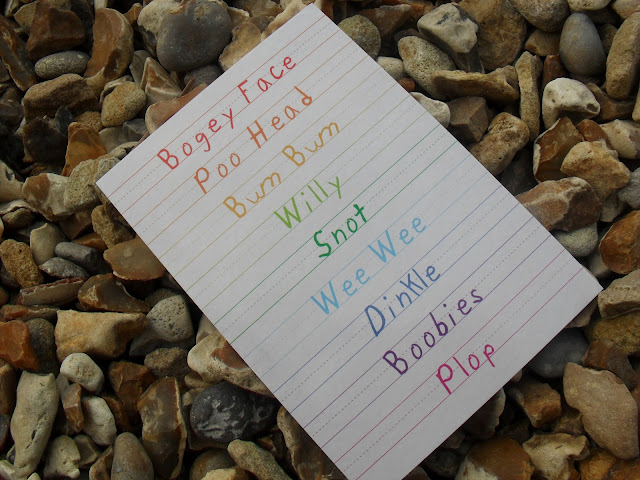 Bogey Face
Poo Head
Bum Bum
Willy
Snot
Wee Wee
Dinkle
Boobies
Plop